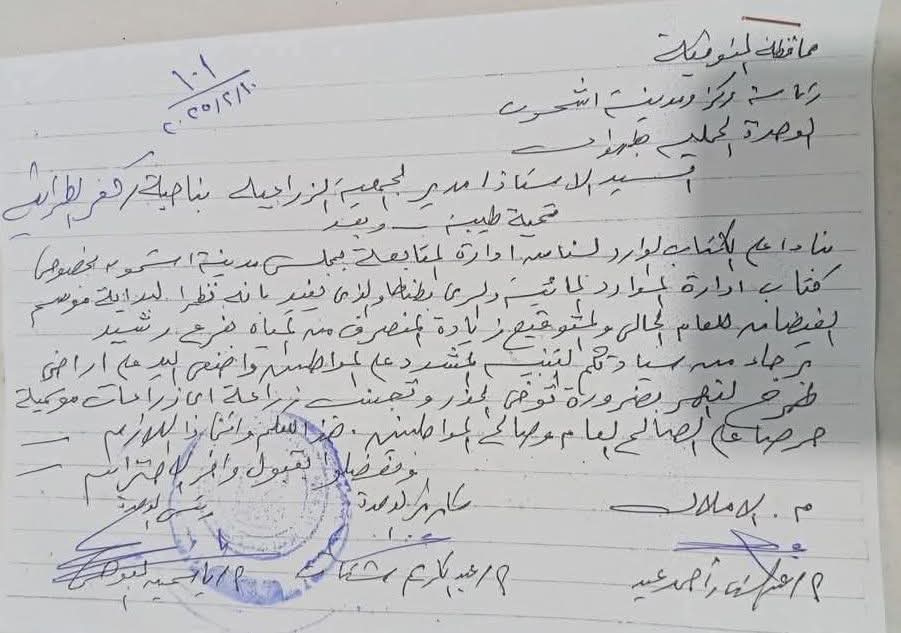 محافظة المنوفية
١٠١
٢٠٢٥/٢/١٠
رئاسة مركز ومدينة اشمون
الوحدة المحلية
السيد الاستاذ / مدير الجمعية الزراعية بناحية / كفر الطراينه
تحية طيبة وبعد
بناءا علي الكتاب الوارد لنا من ادارة المتابعة بمجلس مدينة اشمون بخصوص
كتاب ادارة الموارد المائية والري بطنطا والذي يفيد بانه نظرا لبداية موسم
الفيضان للعام الحالي والمتوقع زيادة المنصرف من المياه بفرع رشيد
برجاء من سيادتكم التنبيه المشدد علي المواطنين واضعي اليد علي اراضي
طرح النهر بضرورة توخي الحذر وتجنب زراعة اي زراعات موسمية
حرصا علي الصالح العام وصالح المواطنين . هذا للعلم واتخاذ اللازم
وتفضلوا بقبول وافر الاحترام
م . الاملاك سكرتير الوحدة رئيس الوحدة
أحمد عيد م / عبد الكريم م / ياسمين